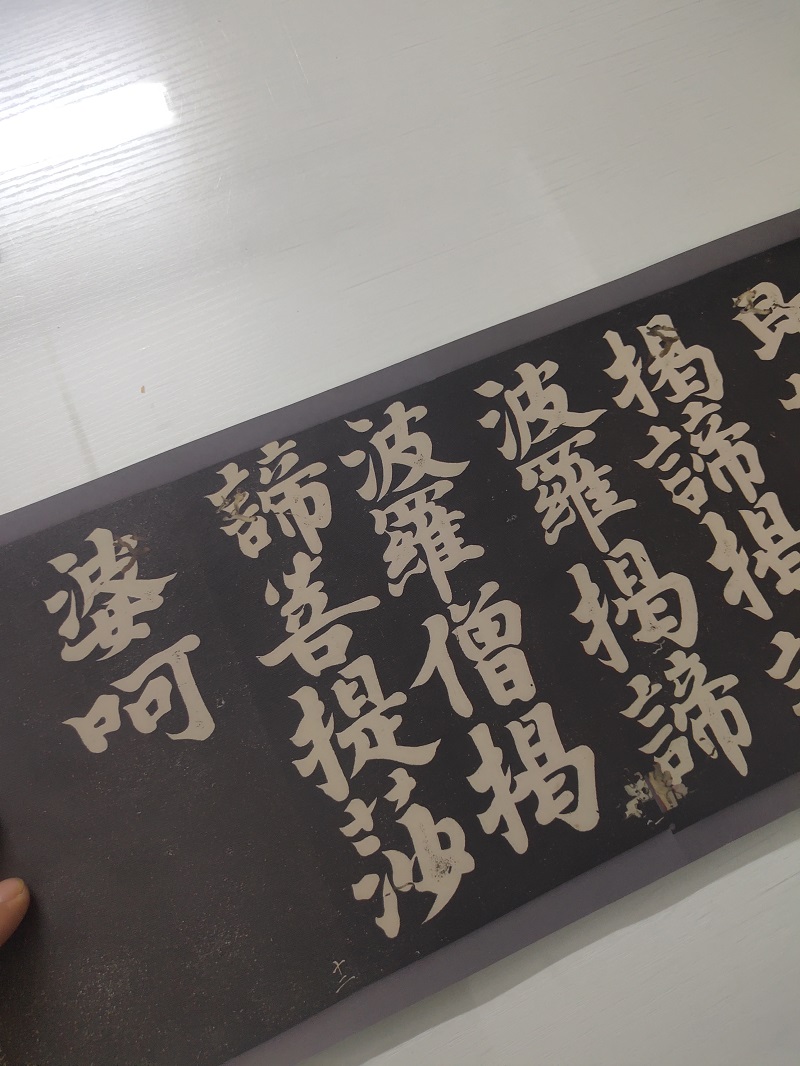 揭諦揭
波羅揭諦
波羅僧揭
諦菩提莎
婆呵
十二